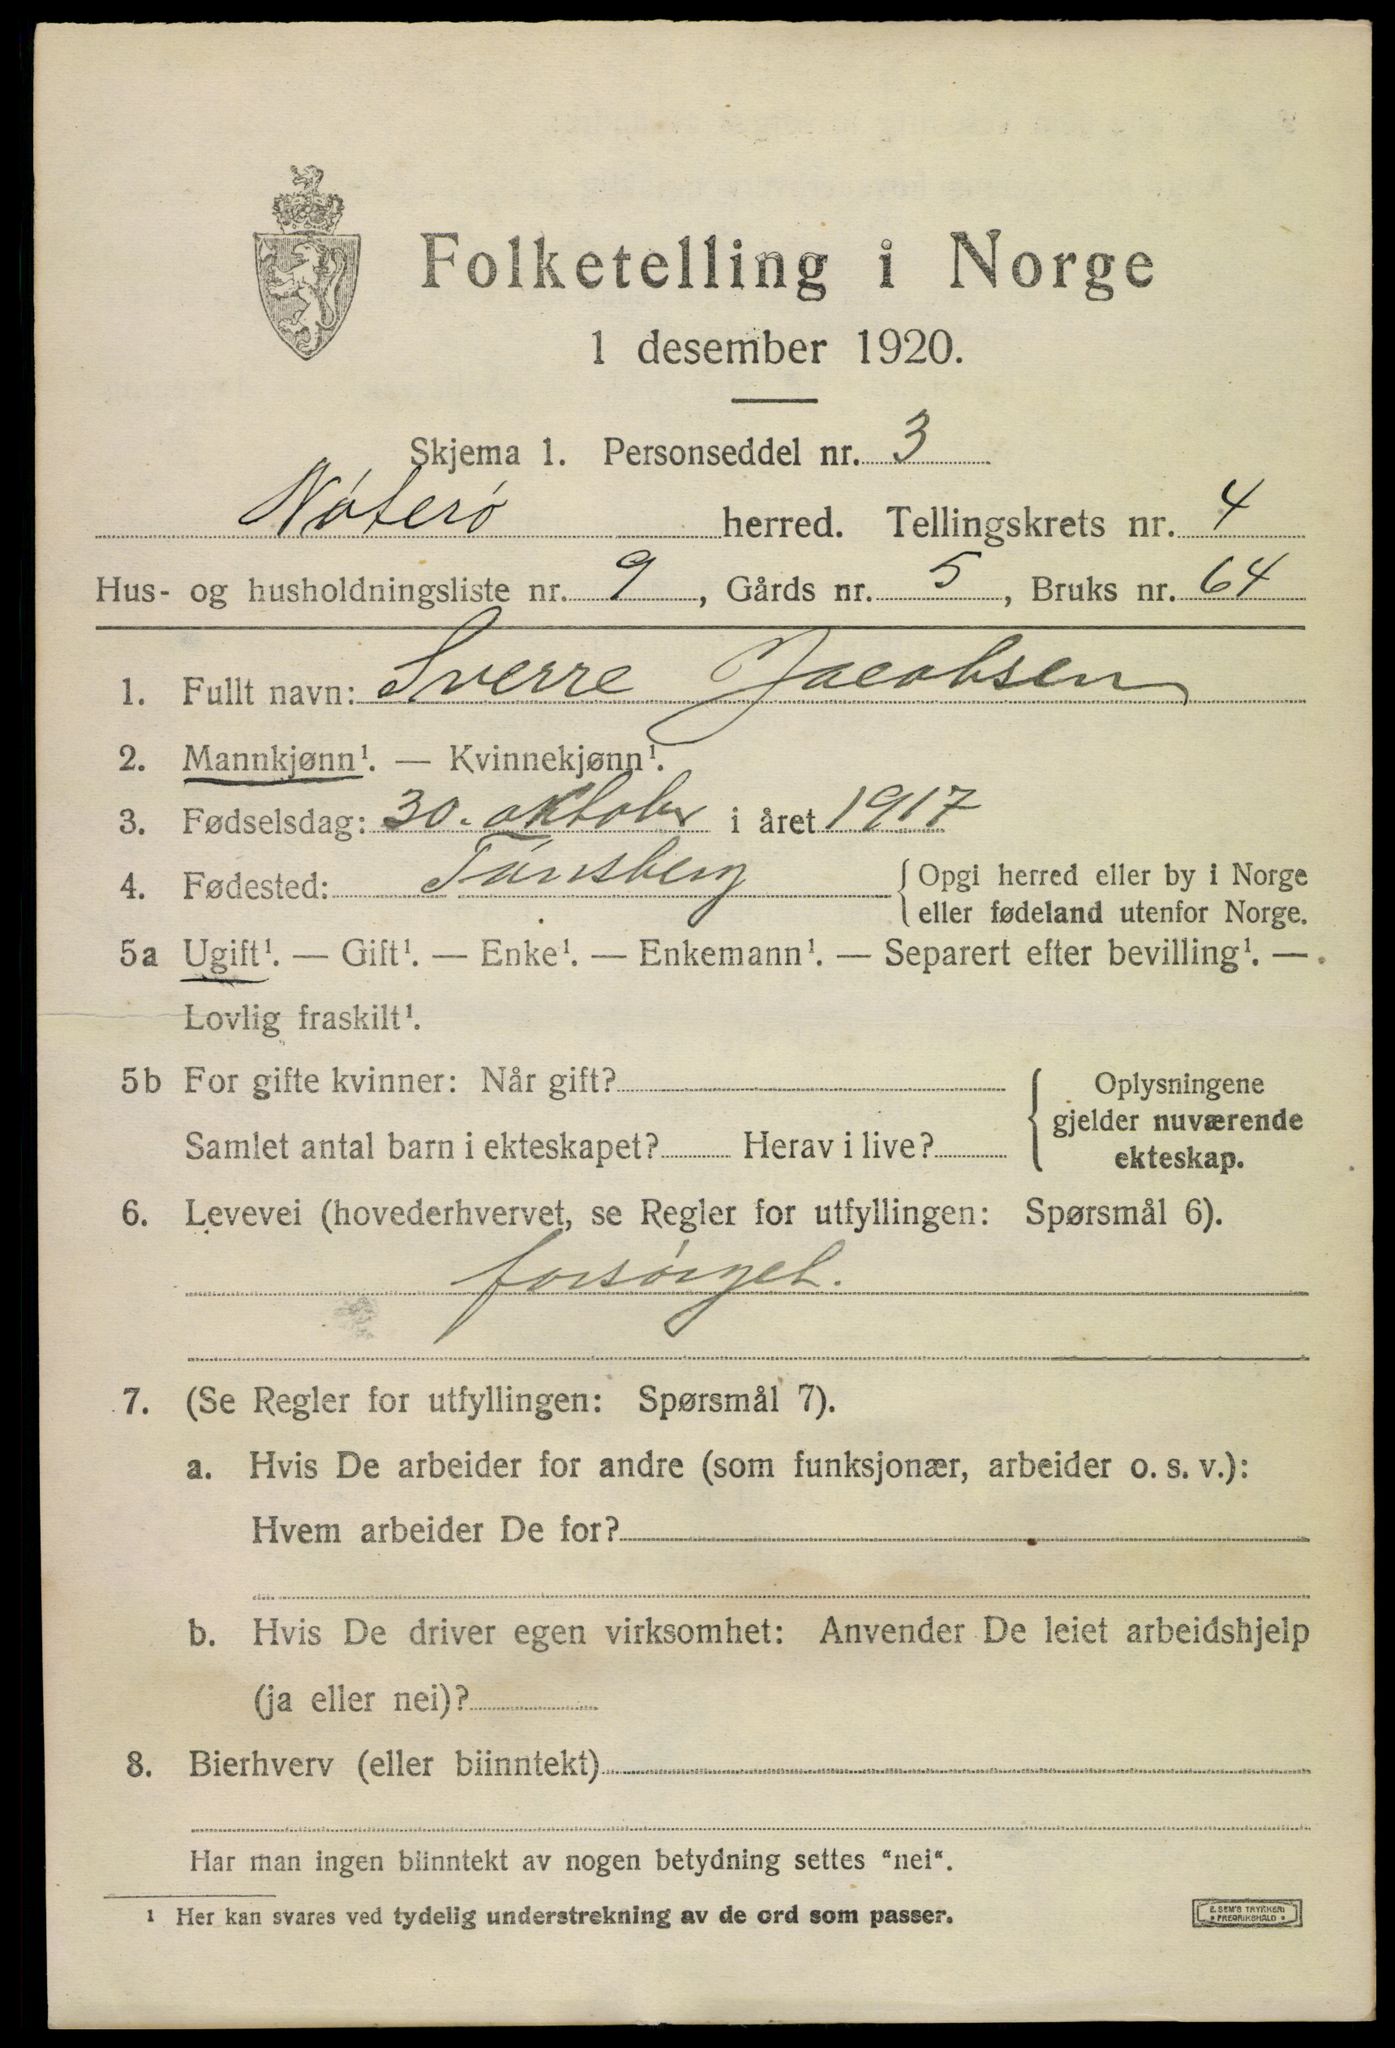 Folketelling i Norge
1 desember 1920.
Skjema 1. Personseddel nr. 3
Nøterø herred. Tellingskrets nr. 4
Hus- og husholdningsliste nr. 9, Gårds nr. 5, Bruks nr. 64
1. Fullt navn: Sverre Jacobsen
2. Mannkjønn¹. — Kvinnekjønn¹.
3. Fødselsdag: 30. oktober i året 1917
4. Fødested: Tønsberg { Opgi herred eller by i Norge
eller fødeland utenfor Norge.
5a Ugift¹. — Gift¹. — Enke¹. — Enkemann¹. — Separert efter bevilling¹. —
Lovlig fraskilt¹.
5b For gifte kvinner: Når gift? { Oplysningene
gjelder nuværende
Samlet antal barn i ekteskapet? Herav i live? ekteskap.
6. Levevei (hovederhvervet, se Regler for utfyllingen: Spørsmål 6).
forsørget.
7. (Se Regler for utfyllingen: Spørsmål 7).
a. Hvis De arbeider for andre (som funksjonær, arbeider o. s. v.):
Hvem arbeider De for?
b. Hvis De driver egen virksomhet: Anvender De leiet arbeidshjelp
(ja eller nei)?
8. Bierhverv (eller biinntekt)
Har man ingen biinntekt av nogen betydning settes "nei".
¹ Her kan svares ved tydelig understrekning av de ord som passer.
E. SEM'S TRYKKERI
• FREDRIKSHALD •